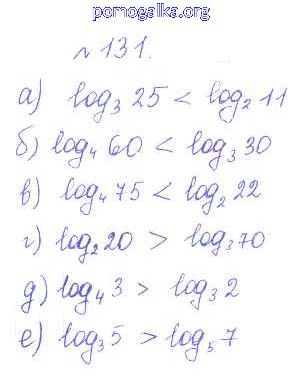 pomogalka.org
№131.
а) log₃ 25 < log₂ 11
б) log₄ 60 < log₃ 30
в) log₄ 75 < log₂ 22
г) log₂ 20 > log₃ 70
д) log₄ 3 > log₃ 2
е) log₃ 5 > log₅ 7